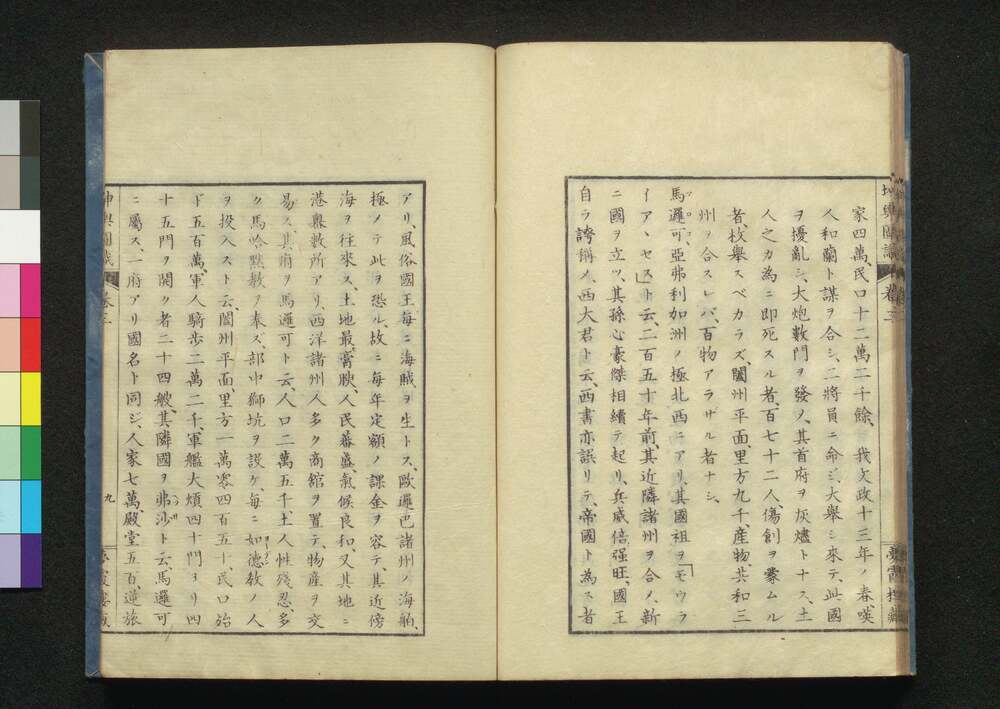 坤輿圖識
卷三
家四萬、民口十二萬二千餘、我文政十三年ノ春、嘆
人和蘭ト謀ヲ合シ、二將員ニ命シ、大舉シ來テ、此國
ヲ擾亂シ、大炮數門ヲ發ノ、其首府ヲ灰燼トナス、土
人之カ為ニ即死スル者、百七十二人傷創ヲ蒙ムル
者、枚舉スベカラズ、闔州平面、里方九千、産物、共和三
州ヲ合スレバ、百物アラサル者ナシ、
馬邏可亞弗利加洲ノ極北西ニアリ、其國祖ヲ「モウラ
イーアヽセス」ト云、二百五十年前、其近隣諸州ヲ合メ、新
ニ國ヲ立ツ、其孫心豪傑相續テ起リ、兵威倍强旺、國王
自ラ誇稱ノ、西大君ト云、西書亦訳リテ、帝國ト為ス者
アリ、風俗國王每ニ海賊ヲ生トス、歐邏巴諸州ノ海舶、
極メテ此ヲ恐ル、故ニ每年定額ノ課金ヲ容テ、其近傍
海ヲ往來ス、土地最膏腴、人民蕃盛、氣候良和、又其地ニ
港奥數所アリ、西洋諸州人多ク商館ヲ置テ、物産ヲ交
易ス、其府ヲ馬邏可ト云、人口二萬五千、土人性殘忍、多
ク馬哈黙敎ヲ奉ズ、部中獅坑ヲ設ケ、每ニ如德敎ノ人
ヲ投入スト云、闔州平面、里方一萬零四百五十、民口殆
ド五百萬、軍人騎歩二萬二千、軍艦大熕四十門ヨリ四
十五門ヲ開ク者二十四艘、其隣國ヲ弗沙ト云、馬邏可
ニ屬ス、一府アリ國名ト同ジ、人家七萬、殿堂五百、逆旅
坤輿圖識
卷三
九